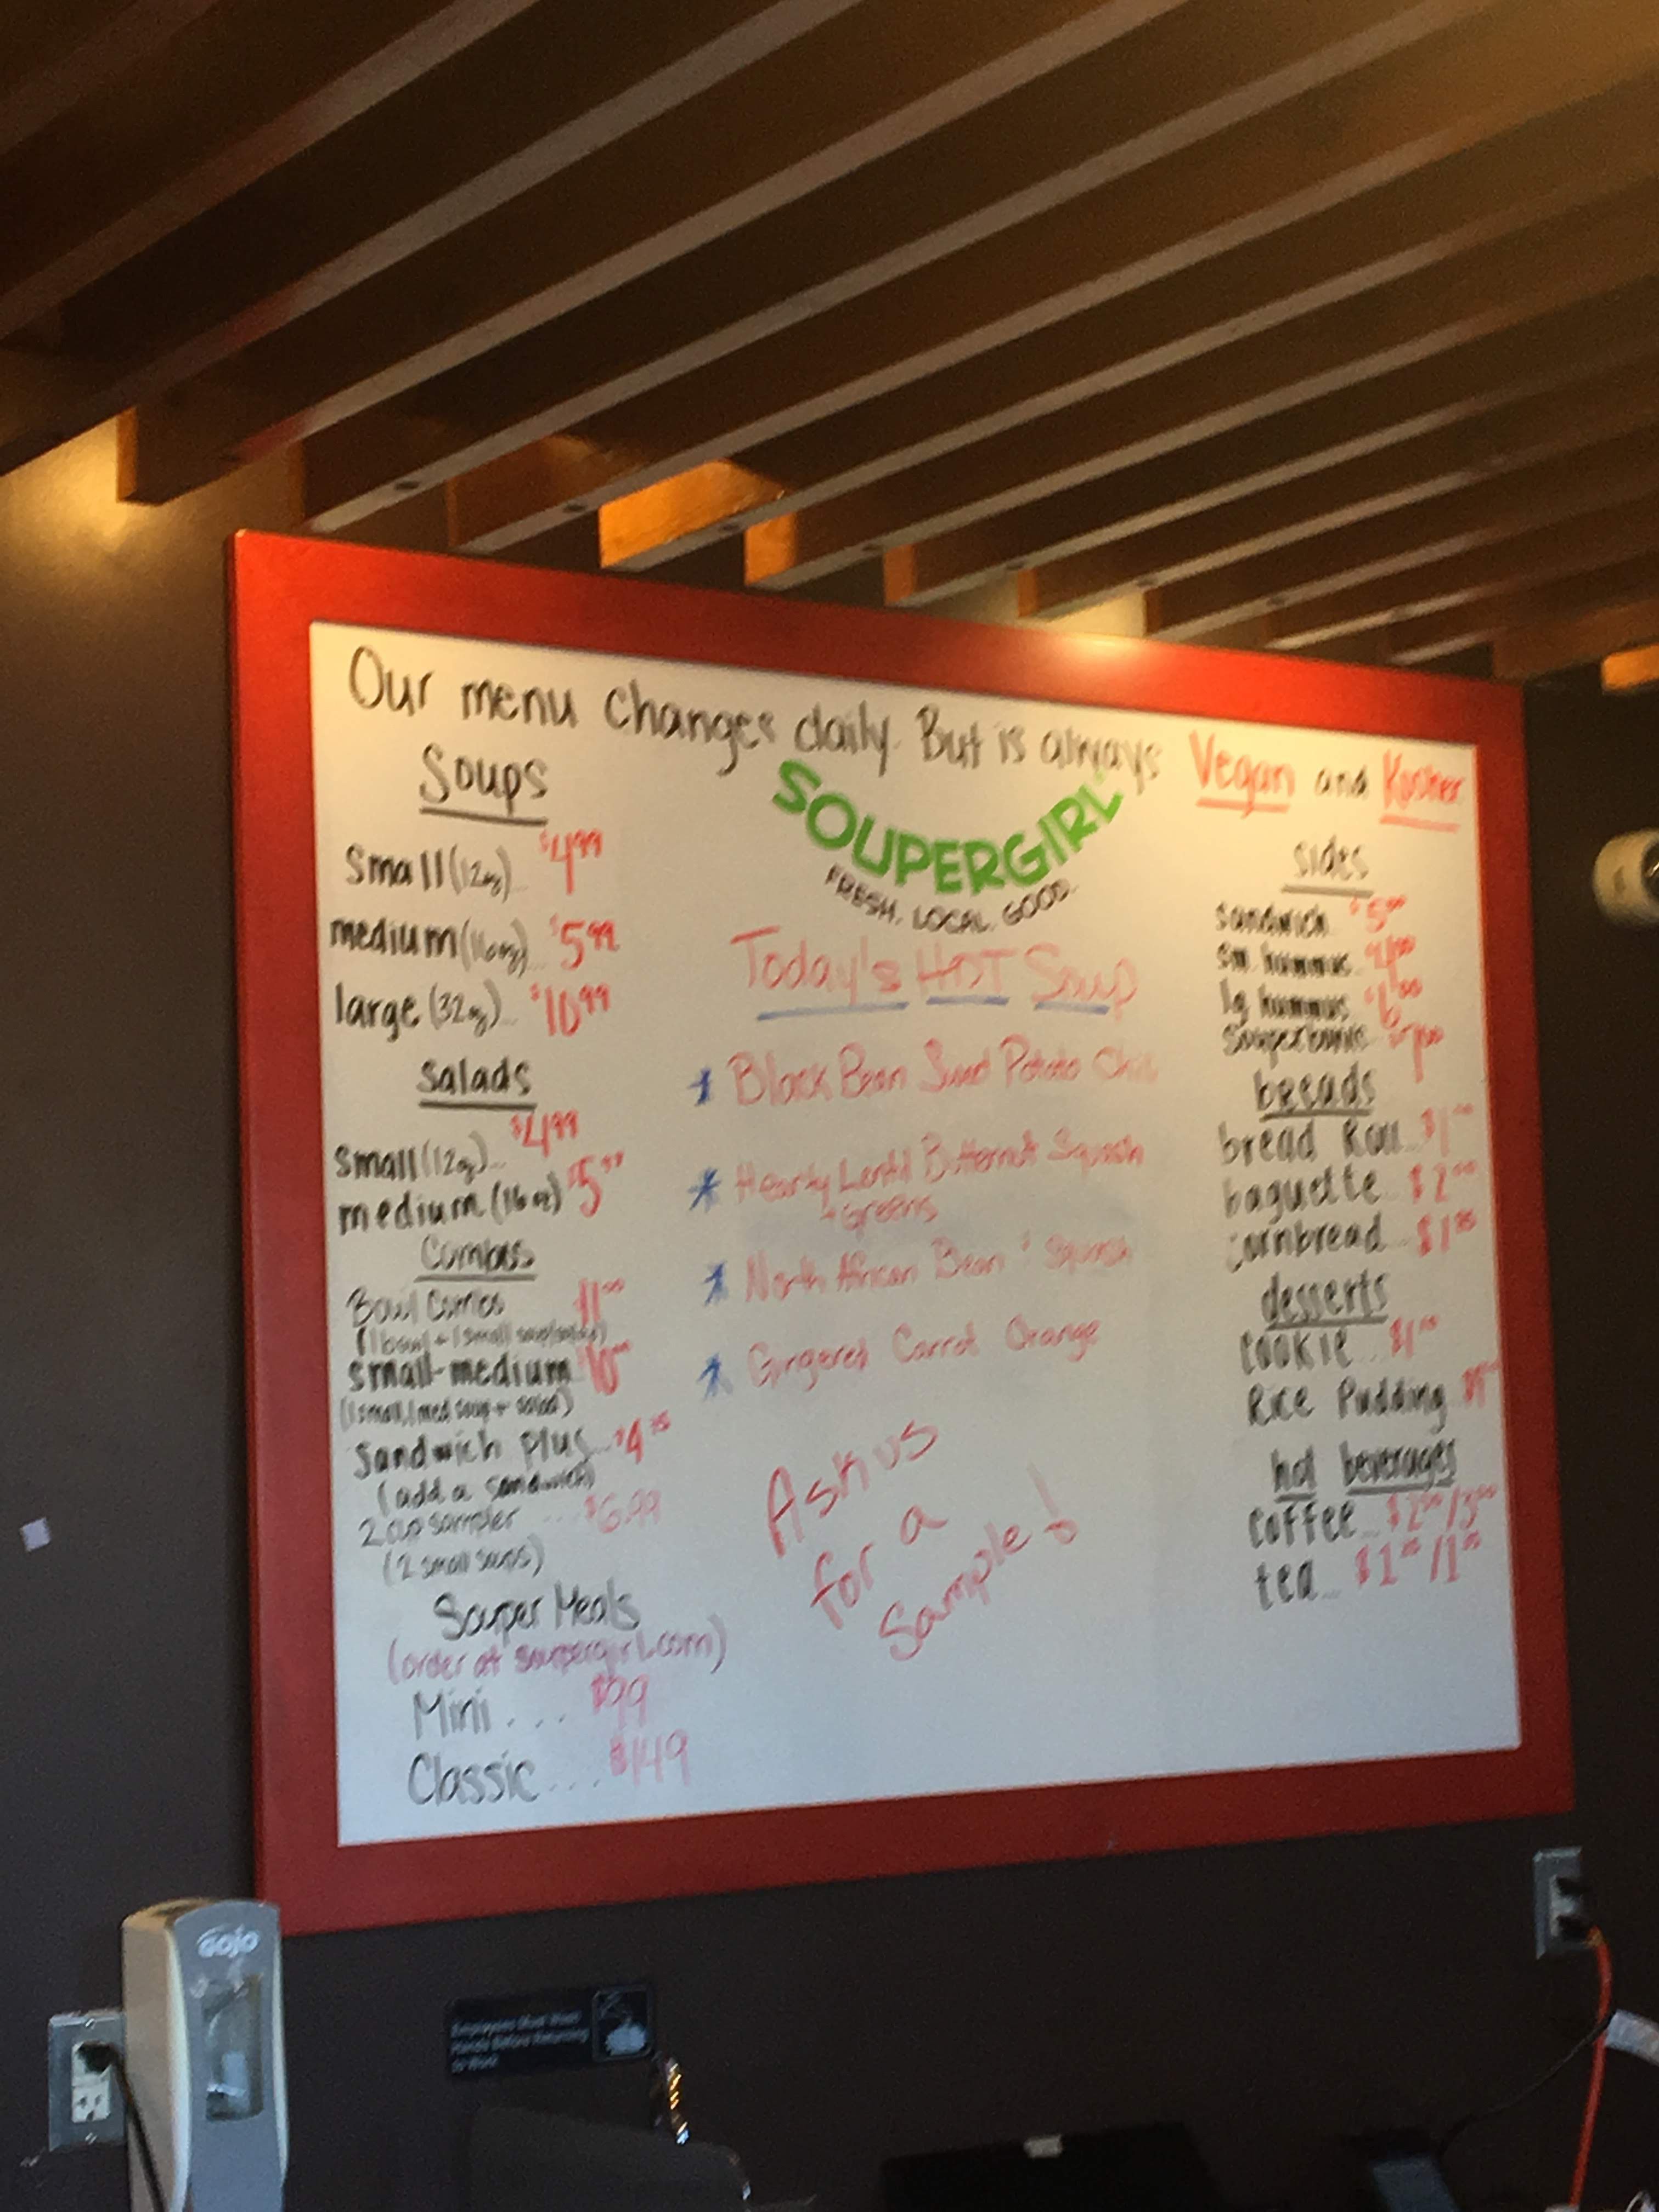 Our menu changes daily. But is always Vegan and Kosher
SOUPERGIRL
FRESH. LOCAL. GOOD.
Soups
Small (12oz)... $4.99
medium (16oz)... $5.99
large (32oz)... $10.99
Salads
Small (12oz)... $4.99
medium (16oz) $5.99
Combos
Bowl Combo $11.00
(1 bowl + 1 small soup/salad)
small-medium $10.00
(1 small, 1 med soup + salad)
Sandwich plus... $4.75
(add a sandwich)
2 cup sampler ... $6.99
(2 small soups)
Souper Meals
(order at soupergirl.com)
Mini .... $99
Classic .... $149
Today's HOT Soup
* Black Bean Sweet Potato Chili
* Hearty Lentil Butternut Squash
+ Greens
* North African Bean Squash
* Gingered Carrot Orange
Ask us
for a
Sample!
sides
sandwich $5.00
sm. hummus $4.00
lg hummus $6.00
breads
bread Roll... $1.00
baguette $2.00
cornbread...
desserts
cookie... $1.00
Rice Pudding
hot beverages
coffee...
tea...
GOJO
Employees Must Wash
Hands Before Returning
to Work